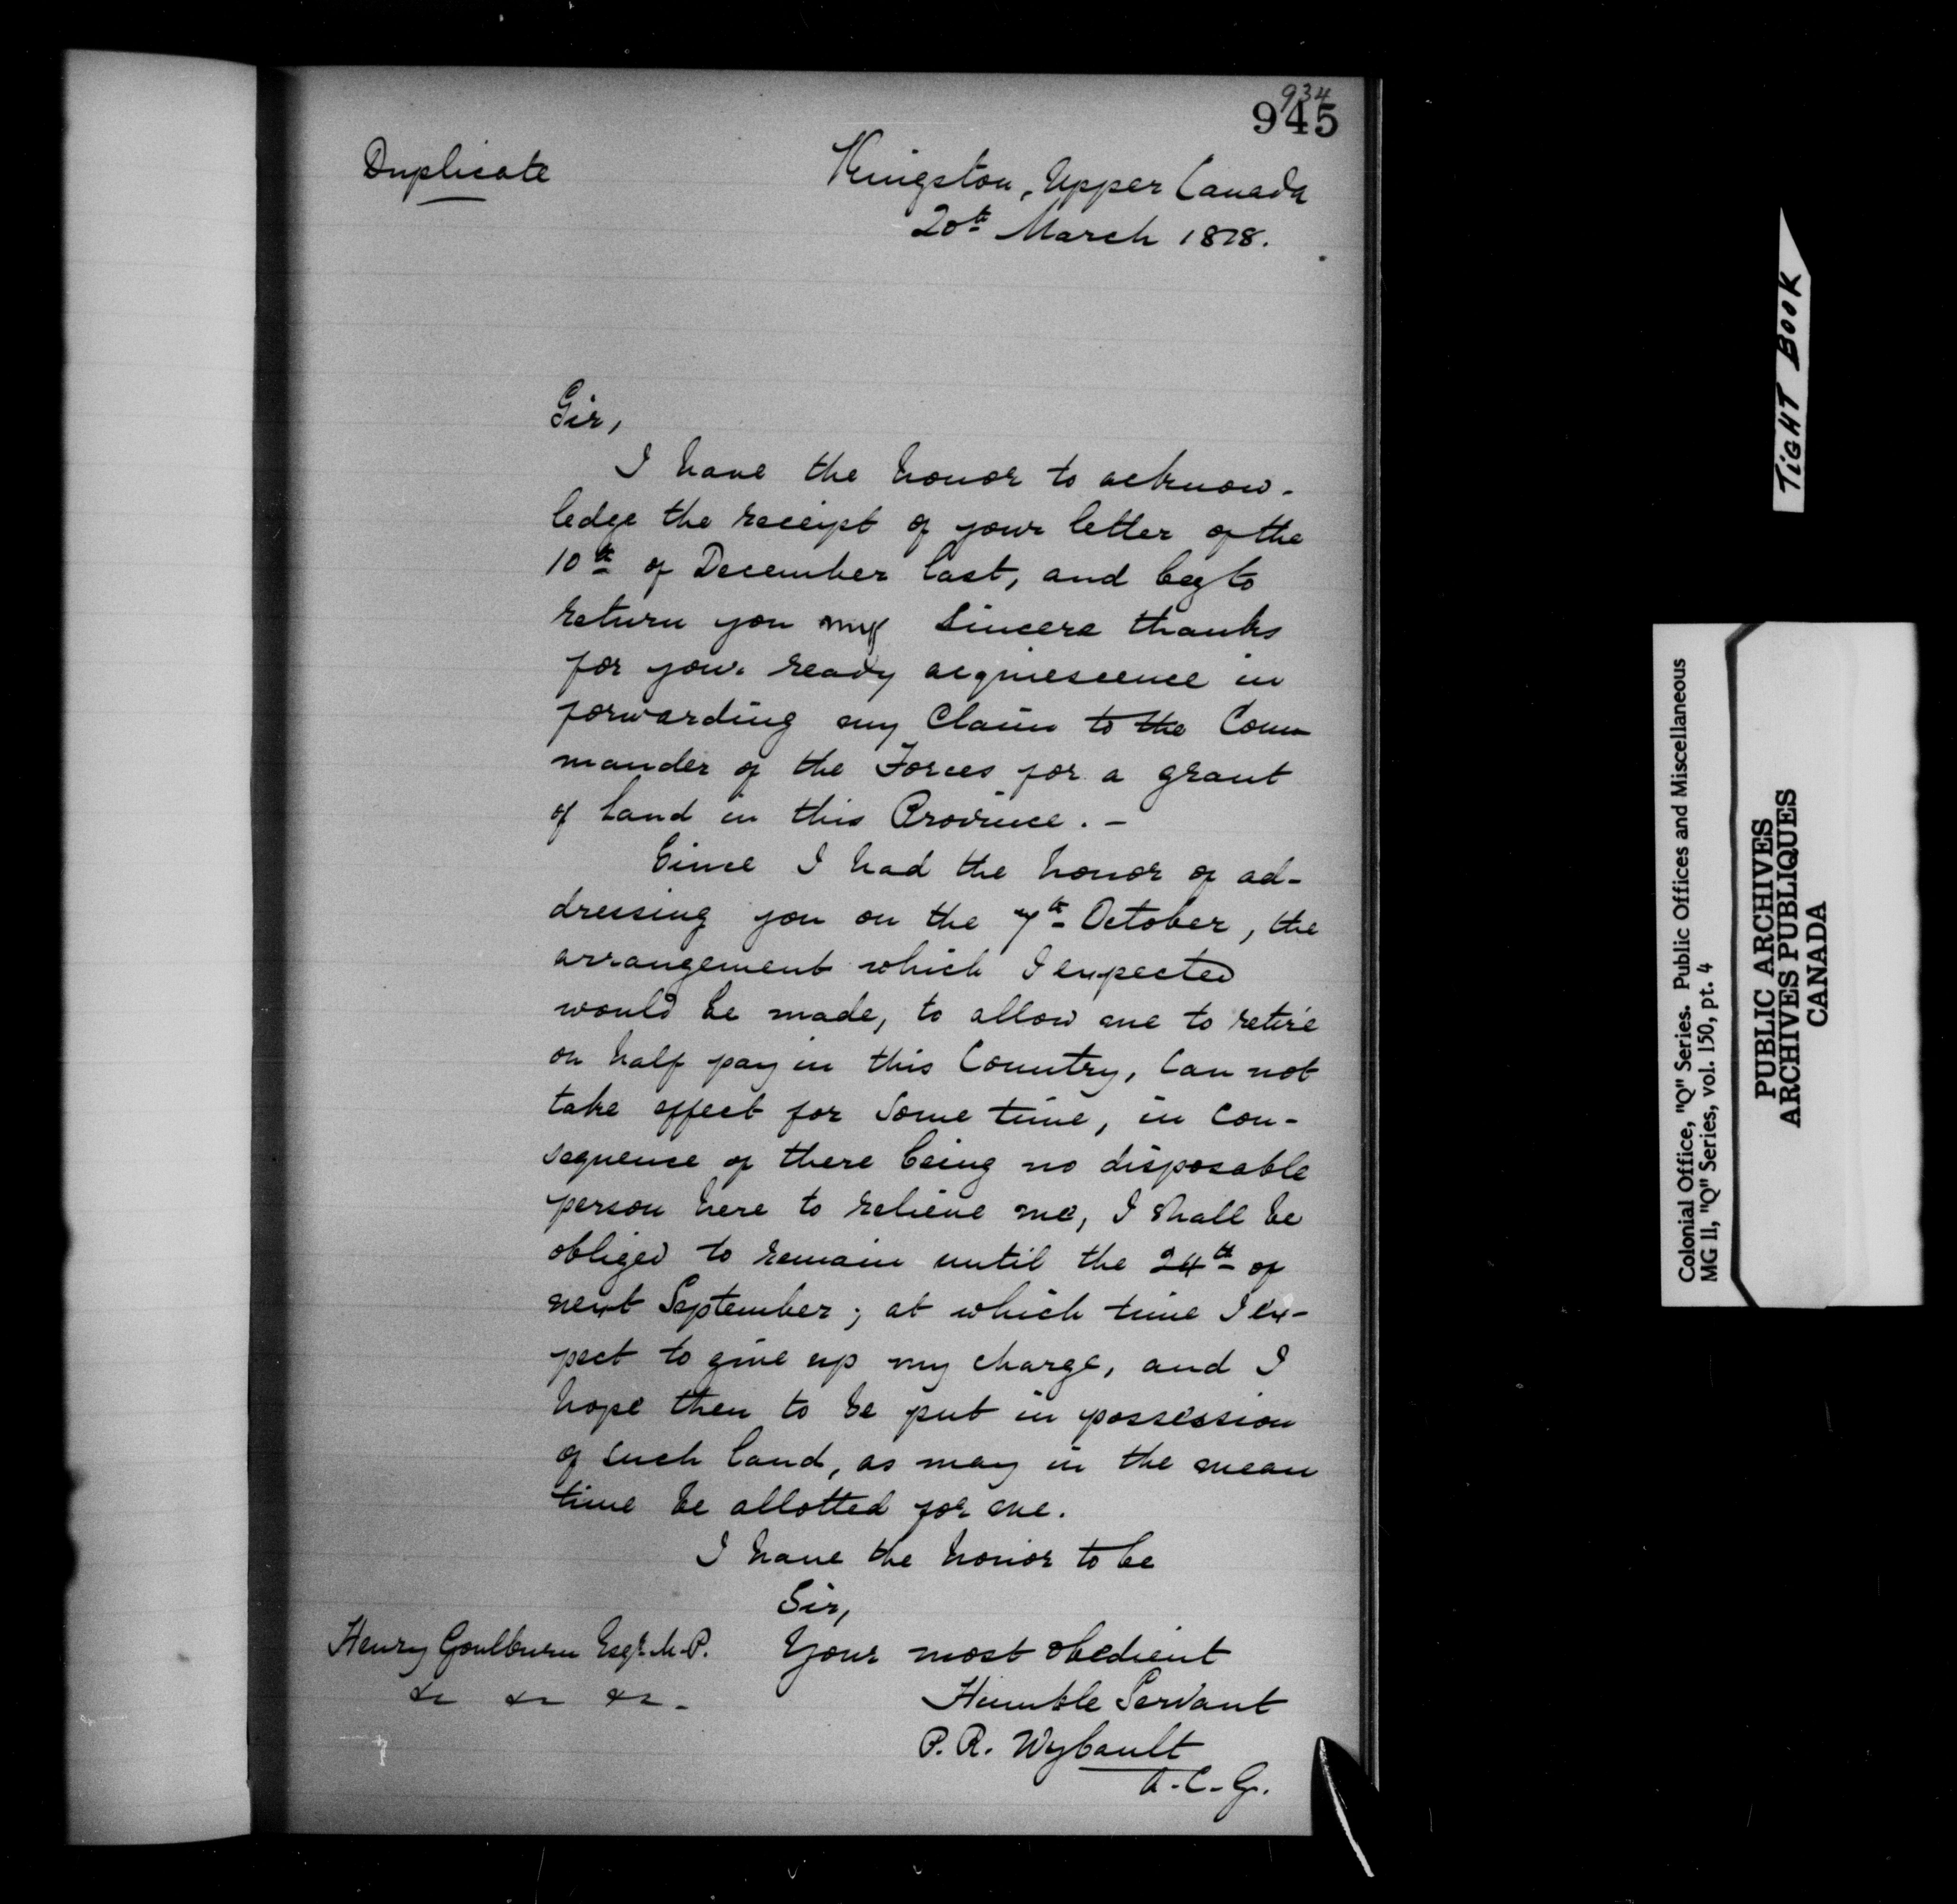 934
945
Duplicate
Kingston, Upper Canada
20th March 1818.
Sir,
I have the honor to acknow-
ledge the receipt of your letter of the
10th of December last, and beg to
return you my sincere thanks
for your ready acquiescence in
forwarding my Claim to the Com
mander of the Forces for a grant
of land in this Province. -
Since I had the honor of ad-
dressing you on the 7th October, the
arrangement which I expected
would be made, to allow me to retire
on half pay in this Country, can not
take effect for some time, in con-
sequence of there being no disposable
person here to relieve me, I shall be
obliged to remain until the 24th of
next September; at which time I ex-
pect to give up my charge, and I
hope then to be put in possession
of such land, as may in the mean
time be allotted for me.
I have the honor to be
Sir,
Your most obedient
Humble Servant
P. R. Wybault
A.C.G.
Henry Goulburn Esqr. M.P.
&c &c &c -
TIGHT BOOK
Colonial Office, "Q" Series. Public Offices and Miscellaneous
MG 11, "Q" Series, vol. 150, pt. 4
PUBLIC ARCHIVES
ARCHIVES PUBLIQUES
CANADA